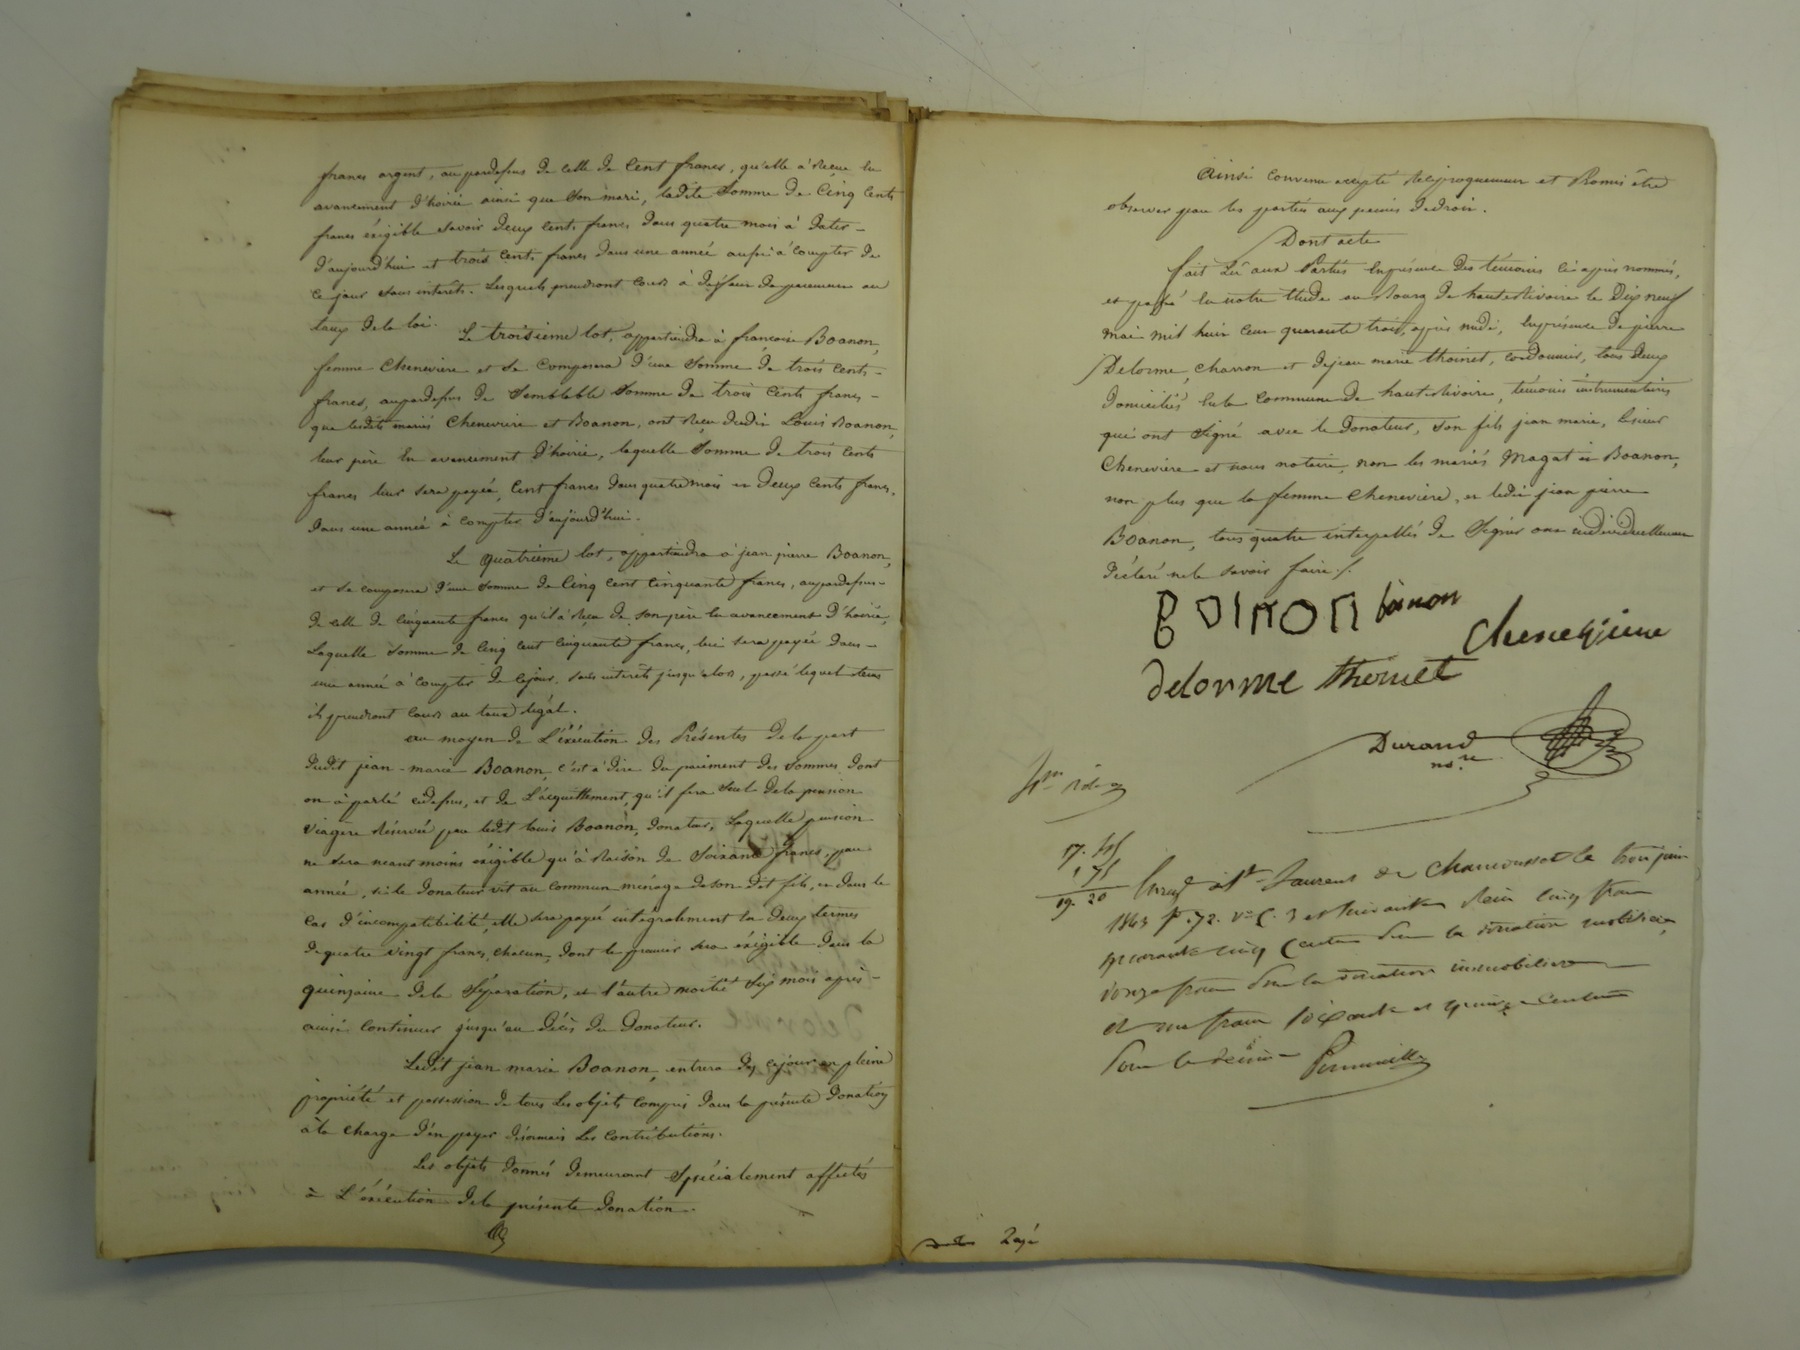 francs argent, audardessus de celle de Cent francs, qu'elle a Reçue en
avancement d'hoirie ainsi que Son mari, ladite Somme de Cinq Cents
francs éxigible Savoir Deux Cents francs dans quatre mois à Dater
d'aujourd'hui et trois Cents francs dans une année aussi à Compter de
ce jour sans interêts. Lesquels prendront Cours à défaut de paiement au
taux de la loi.
Le troisieme lot, appartiendra à francoise Boanon,
femme Chenevière et Se Composera d'une Somme de trois Cents
francs, aupardessus de Semblable Somme de trois Cents francs
que lesdits mariés Chenevière et Boanon, ont Reçu dudit Louis Boanon,
leur père En avancement d'hoirie, laquelle Somme de trois Cents
francs leur Sera payée, Cent francs dans quatre mois et Deux Cents francs,
dans une année à Compter d'aujourd'hui.
Le quatrieme lot, appartiendra à jean pierre Boanon,
et Se Composera d'une Somme de Cinq Cent Cinquante francs, aupardessus
de celle de Cinquante francs qu'il a Reçu de Son père En avancement d'hoirie,
Laquelle Somme de Cinq Cent Cinquante francs, lui Sera payée dans
une année à Compter de Cejour. Sans interêts jusqu'alors, passé lequel tems
ils prendront Cours au taux légal.
au moyen de L'éxécution des Présentes de la part
dudit jean-marie Boanon, C'est à dire du paiement des Sommes dont
on à parlé cidessus, et de L'acquittement, qu'il fera Seul de la pension
viagère Réservée par ledit Louis Boanon, Donateur, Laquelle pension
ne Sera néantmoins éxigible qu'à Raison de Soixante francs, par
année, si le Donateur vit au Commun ménage de Son dit fils, et dans le
Cas d'incompatibilité, elle Sera payée intégralement En Deux termes
de quatre vingt francs, chacun, dont le premier Sera éxigible dans la
quinzaine de la Séparation, et l'autre moitié Six mois après
ainsi Continuer jusqu'au Décès du Donateur.
Ledit jean marie Boanon, entrera dès Cejour en pleine
propriété et possession de tous les objets Compris dans la présente Donation
à la charge d'en payer désormais Les Contributions.
Les objets donnés demeurant Spécialement affectés
à L'éxécution de la présente Donation.
Ainsi Convenu accepté Réciproquement et Promis être
observer par les parties aux peines de droit.
Dont acte
fait Lû aux Parties En présence des témoins Ci après nommés,
et passé En notre étude au Bourg de haute Rivoire le Dix neuf
mai mil huit Cent quarante trois, après midi, En présence de pierre
Delorme, Charron et de jean marie thoinet, Cordonnier, tous deux
domiciliés En la Commune de haute Rivoire, témoins instrumentaires
qui ont Signé avec le Donateur, Son fils jean marie, le sieur
Chenevière et nous notaire, non les mariés Magat et Boanon,
non plus que la femme Chenevière, et ledit jean pierre
Boanon, tous quatre interpellés de Signer ont individuellement
déclaré ne le Savoir faire./.
BOINON boinon
Chenevjiere
delorme thoinet
Durand
nore
17. 45
1. 75
19. 20
Enregé à St Laurent de Chamousset le trois juin
1843 fo. 72. Vo C. 3 et Suivantes Reçu Cinq francs
quarante cinq Centes Sur la donation mobilière,
douze francs Sur la donation immobilière
et un franc Soixante et quinze Centimes
Pour le décime